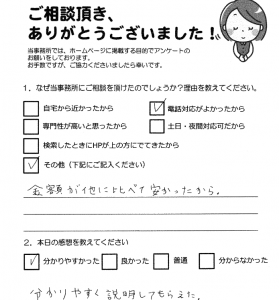 ご相談頂き、
ありがとうございました！
当事務所では、ホームページに掲載する目的でアンケートの
お願いをしております。
お手数ですが、ご協力くださいましたら幸いです。
1．なぜ当事務所にご相談を頂けたのでしょうか？理由を教えてください。
自宅から近かったから ✓ 電話対応がよかったから
専門性が高いと思ったから 土日・夜間対応可だから
検索したときにHPが上の方にでてきたから
✓ その他（下記にご記入ください）
金額が他に比べて安かったから。
2．本日の感想を教えてください
✓ 分かりやすかった 良かった 普通 分からなかった
分かりやすく説明してもらえた。